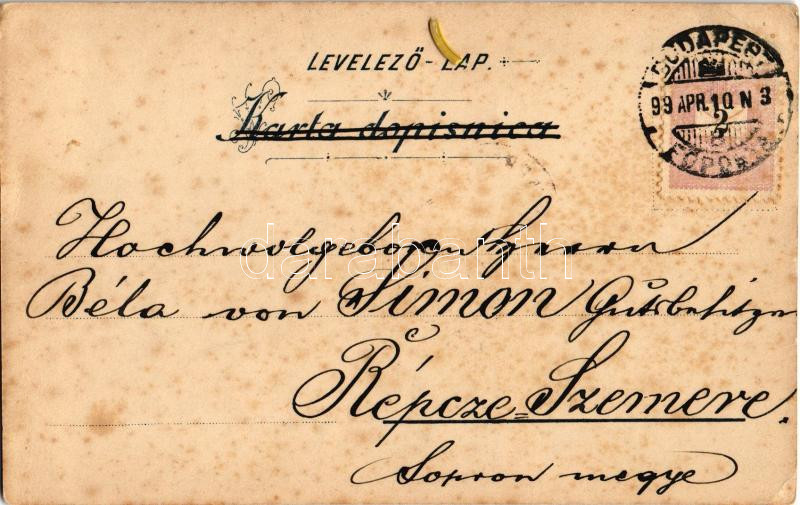 LEVELEZŐ-LAP.
Karta dopisnica
BUDAPEST
99 APR. 10. N 3
FŐPOSTA
2
Hochwolgeboren Herrn
Béla von Simon Gutsbesitzer
Répcze=Szemere.
Sopron megye
darabanth